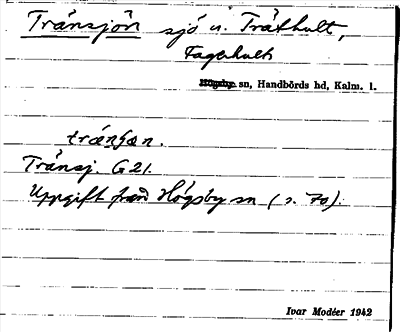 Tränsjön sjö n. Träthult,
Fagerhults
Högsby sn, Handbörds hd, Kalm. l.
Tränsj. G 21.
Uppgift från Högsby sn (s. 70).
Ivar Modéer 1942